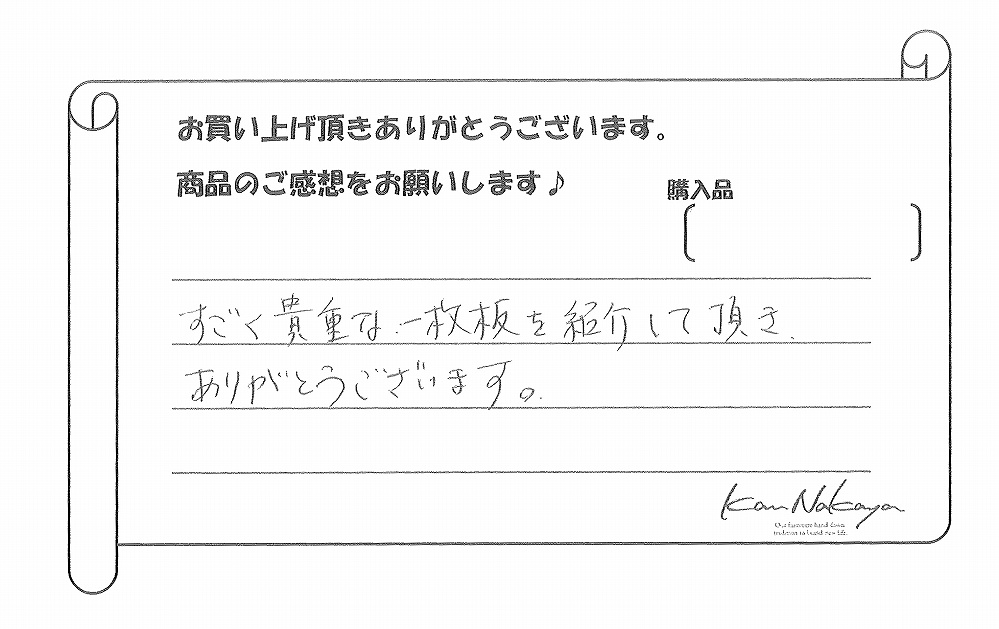 お買い上げ頂きありがとうございます。
商品のご感想をお願いします♪
購入品
すごく貴重な一枚板を紹介して頂き、
ありがとうございます。
Kan Nakaya
Our furniture hand down
tradition to build new life.